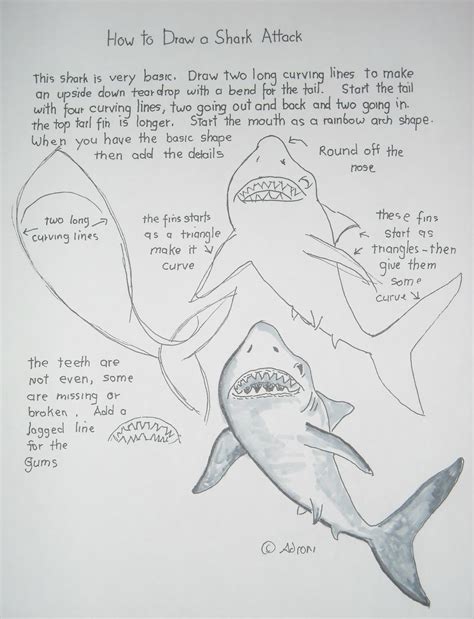 How to Draw a Shark Attack
This shark is very basic. Draw two long curving lines to make
an upside down teardrop with a bend for the tail. Start the tail
with four curving lines, two going out and back and two going in.
the top tail fin is longer. Start the mouth as a rainbow arch shape.
When you have the basic shape
then add the details
Round off the
nose
two long
curving lines
the fins starts
as a triangle
make it
curve
these fins
start as
triangles-then
give them
some
curve
the teeth are
not even, some
are missing or
broken. Add a
jagged line
for the
Gums
© Adron